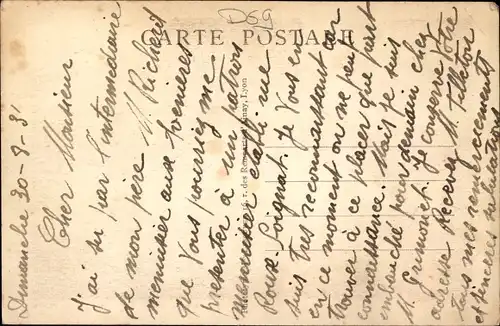 D69
CARTE POSTALE
Dimanche 30-8-31
Cher Monsieur
J'ai su par l'intermédiaire
de mon père M. Richerit
menuisier aux Avenieres
que vous pourriez me
présenter à un patron
menuisier établi rue
Roux-Soignat. Je vous en
suis très reconnaissant car
en ce moment on ne peut
trouver à se placer que par
connaissance. Mais je suis
embauché pour demain chez
M. Je conserve votre
adresse Recevez M.
tous mes remerciements
et sincères salutations